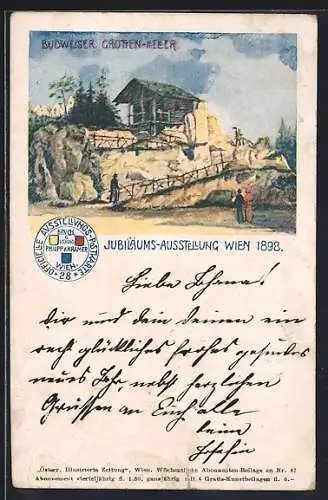 BUDWEISER GROTTEN-KELLER
OFFICIELLE AUSSTELLUNGS-POSTKARTE
DRUCK
U. VERLAG
PHILIPP & KRAMER
WIEN.
28
JUBILÄUMS-AUSSTELLUNG WIEN 1898.
Liebe Johanna!
Dir und dein deinen ein
recht glückliches frohes gesundes
neues Jahr, nebst herzlichen
Grüssen an Euch alle
Josefin
„Österr. Illustrirte Zeitung“, Wien. Wöchentliche Abonnenten-Beilage zu Nr. 47
Abonnement vierteljährig fl. 1.50, ganzjährig mit 4 Gratis-Kunstbeilagen fl. 6.—